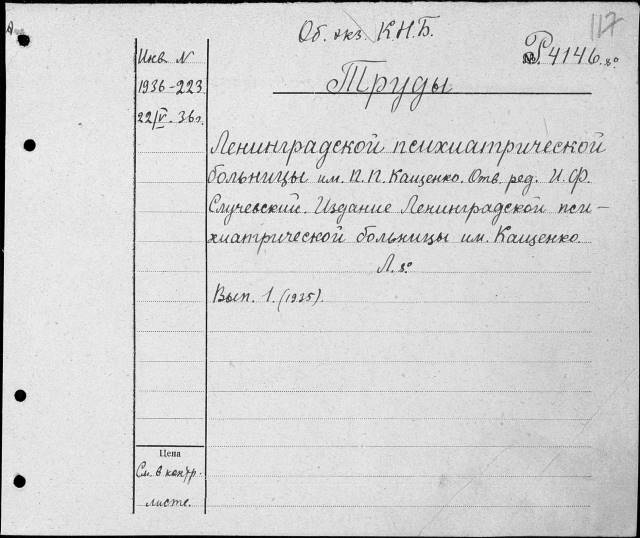 Об. экз. К.Н.Б.
117
№ Р4146. 8°
Инв. N
1936-223
22/V. 36 г.
Труды
Ленинградской психиатрической
больницы им. П.П. Кащенко. Отв. ред. И.Ф.
Случевский. Издание Ленинградской пси-
хиатрической больницы им. Кащенко.
Л. 8°
Вып. 1. (1935).
Цена
См. в контр.
листе.